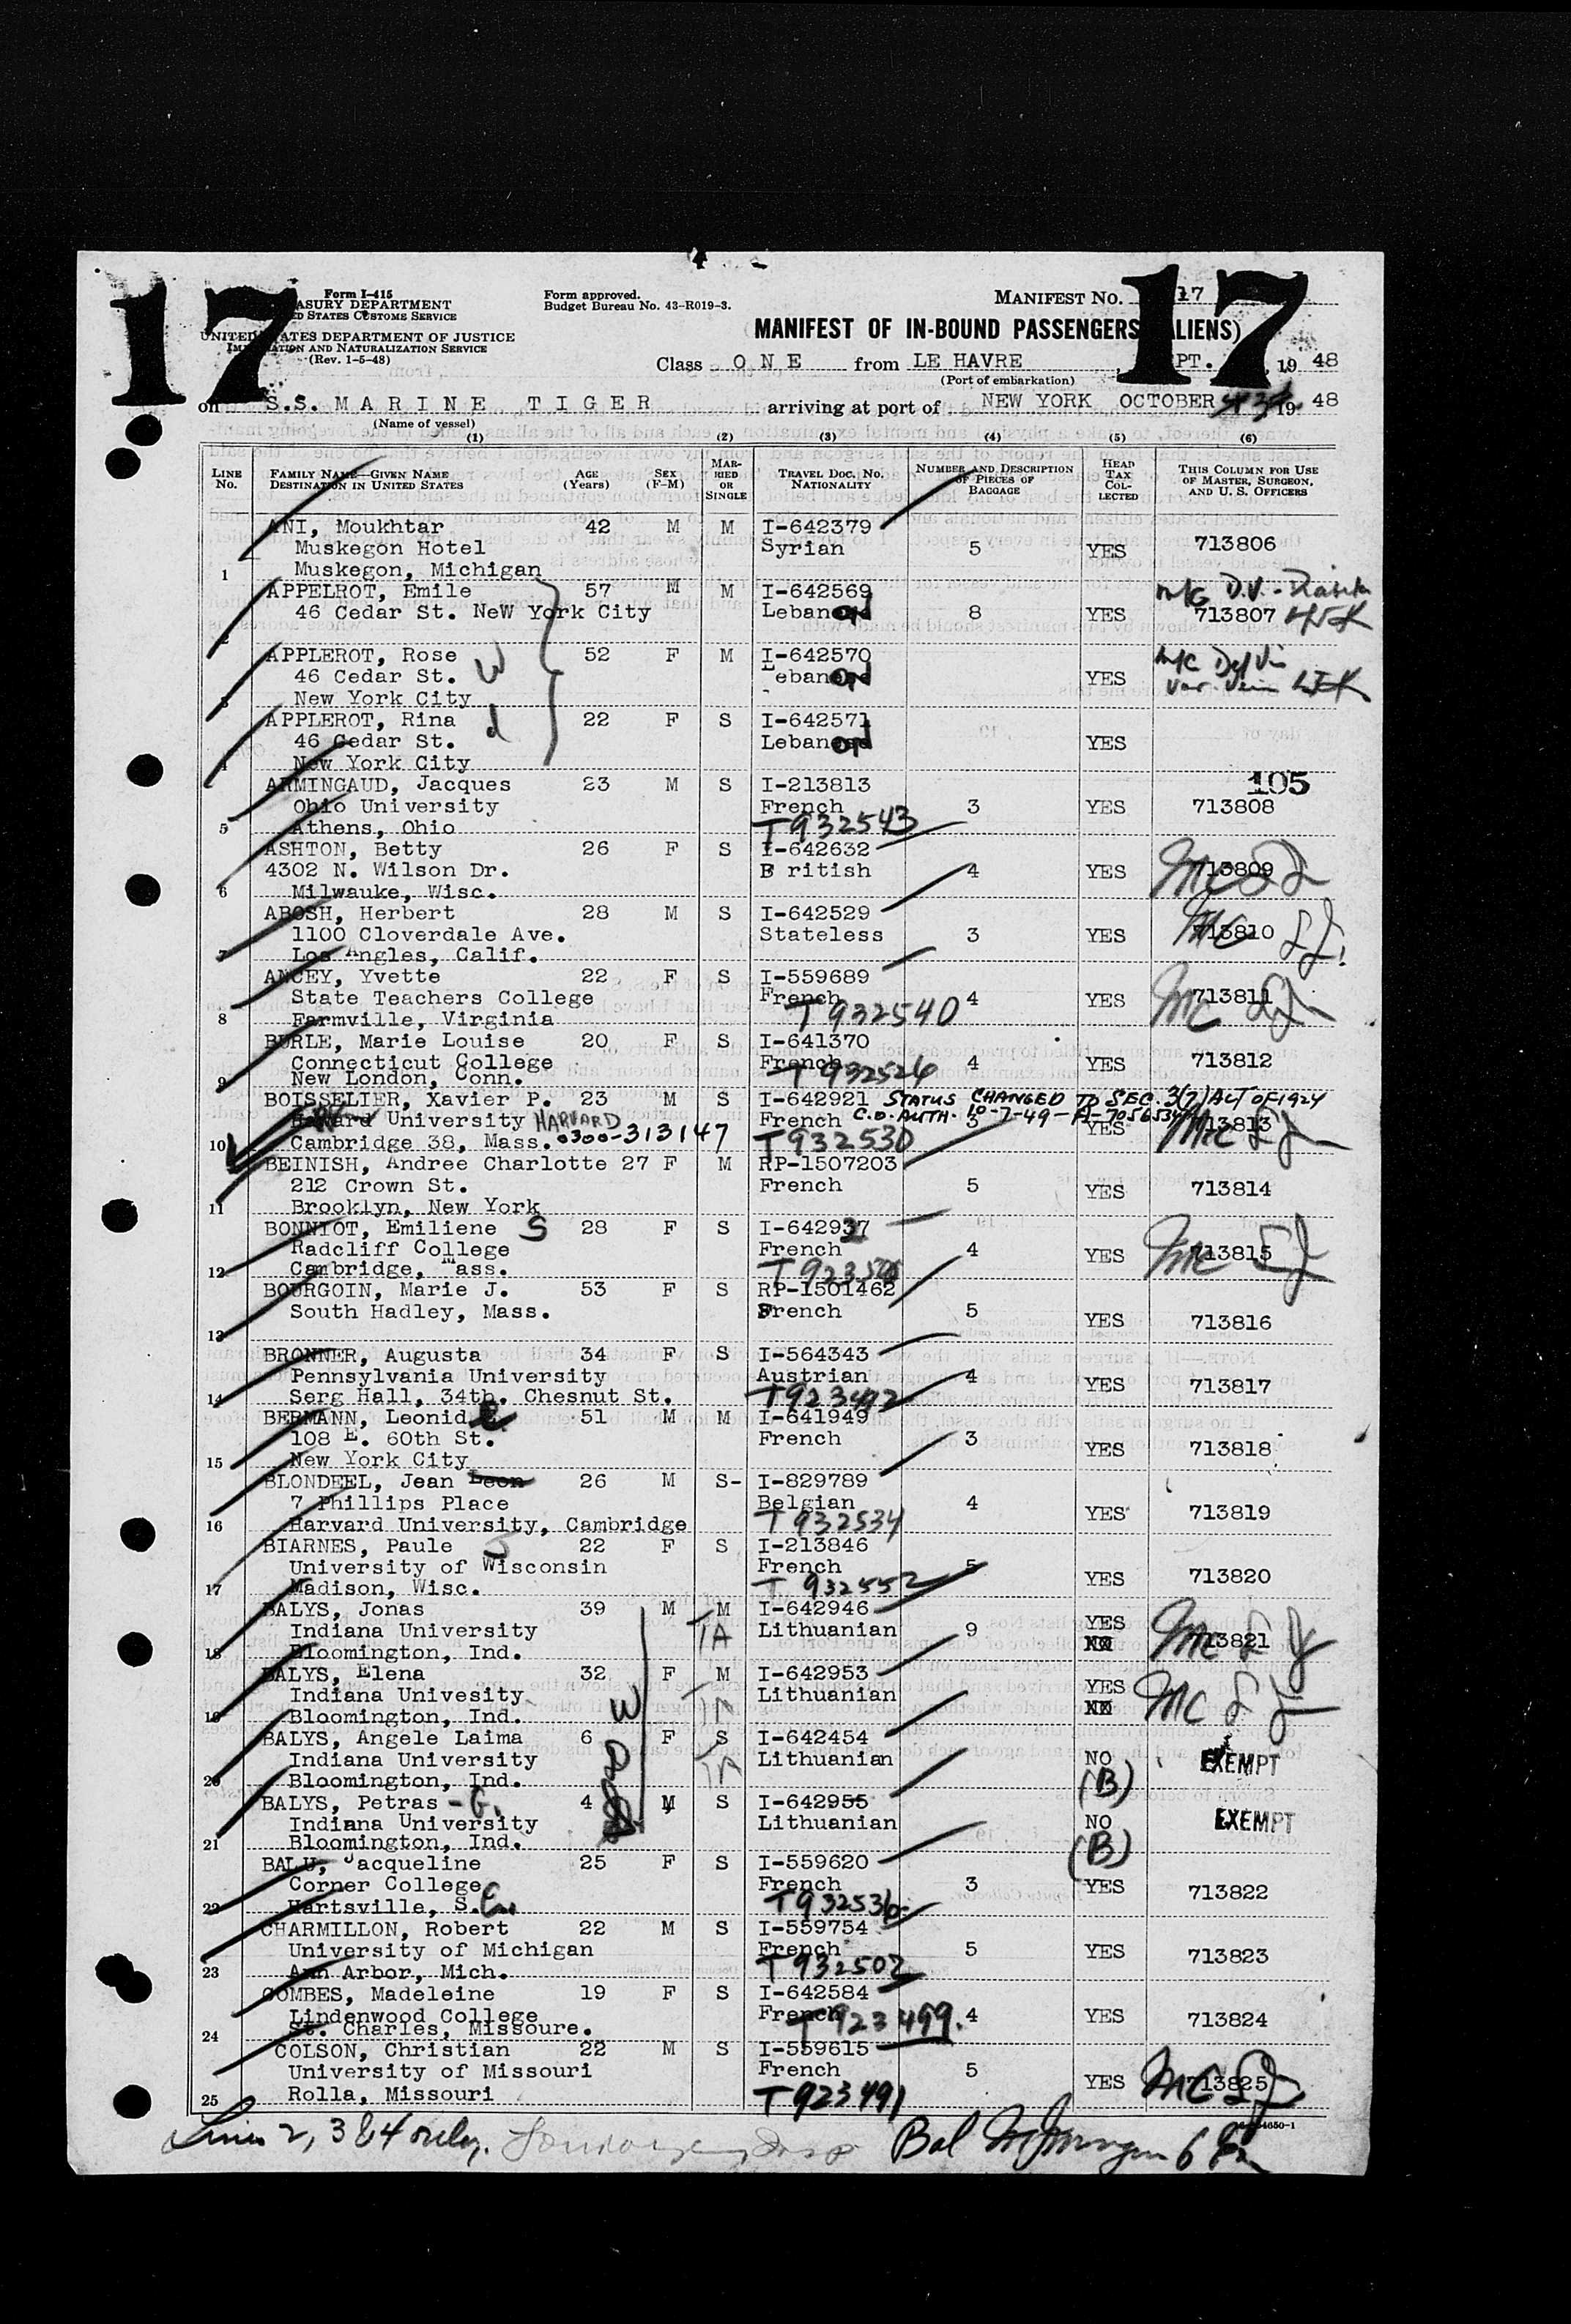 17
17
Form I-415
TREASURY DEPARTMENT
UNITED STATES CUSTOMS SERVICE
UNITED STATES DEPARTMENT OF JUSTICE
IMMIGRATION AND NATURALIZATION SERVICE
(Rev. 1-5-48)
Form approved.
Budget Bureau No. 43-R019-3.
MANIFEST NO. 17
MANIFEST OF IN-BOUND PASSENGERS (ALIENS)
Class O N E from LE HAVRE, SEPT. , 19 48
(Port of embarkation)
on S.S. MARINE TIGER arriving at port of NEW YORK OCTOBER 19 48
(Name of vessel)
(1) (2) (3) (4) (5) (6)
LINE No. FAMILY NAME—GIVEN NAME DESTINATION IN UNITED STATES AGE (Years) SEX (F-M) MARRIED OR SINGLE TRAVEL DOC. NO. NATIONALITY NUMBER AND DESCRIPTION OF PIECES OF BAGGAGE HEAD TAX COLLECTED THIS COLUMN FOR USE OF MASTER, SURGEON, AND U. S. OFFICERS
ANI, Moukhtar 42 M M I-642379
Muskegon Hotel Syrian 5 YES 713806
1 Muskegon, Michigan
APPELROT, Emile 57 M M I-642569
46 Cedar St. NeW York City Lebanon 8 YES 713807
2
APPLEROT, Rose 52 F M I-642570
46 Cedar St. W Lebanon YES
3 New York City
APPLEROT, Rina 22 F S I-642571
46 Cedar St. d Lebanon YES
4 New York City
105
ARMINGAUD, Jacques 23 M S I-213813
Ohio University French 3 YES 713808
5 Athens, Ohio T932543
ASHTON, Betty 26 F S I-642632
4302 N. Wilson Dr. B ritish 4 YES 713809
6 Milwauke, Wisc.
ABOSH, Herbert 28 M S I-642529
1100 Cloverdale Ave. Stateless 3 YES 713810
7 Los Angles, Calif.
ANCEY, Yvette 22 F S I-559689
State Teachers College French 4 YES 713811
8 Farmville, Virginia T932540
BURLE, Marie Louise 20 F S I-641370
Connecticut College French 4 YES 713812
9 New London, Conn. T932526
BOISSELIER, Xavier P. 23 M S I-642921 STATUS CHANGED TO SEC. 3(7) ACT OF 1924
University HARVARD French C.O. AUTH. 10-7-49-A-7056534 3 YES 713813
10 Cambridge 38, Mass. 0300-313147 T932530
BEINISH, Andree Charlotte 27 F M RP-1507203
212 Crown St. French 5 YES 713814
11 Brooklyn, New York
BONNIOT, Emiliene S 28 F S I-642937
Radcliff College French 4 YES 713815
12 Cambridge, Mass.
BOURGOIN, Marie J. 53 F S RP-1501462
South Hadley, Mass. French 5 YES 713816
13
BRONNER, Augusta 34 F S I-564343
Pennsylvania University Austrian 4 YES 713817
14 Serg Hall, 34th. Chesnut St. T923492
BERMANN, Leonid 51 M M I-641949
108 E. 60th St. French 3 YES 713818
15 New York City
BLONDEEL, Jean Leon 26 M S- I-829789
7 Phillips Place Belgian 4 YES 713819
16 Harvard University, Cambridge T932534
BIARNES, Paule S 22 F S I-213846
University of Wisconsin French 5 YES 713820
17 Madison, Wisc. T932552
BALYS, Jonas 39 M M I-642946
Indiana University TA Lithuanian 9 YES 713821
18 Bloomington, Ind. NO
BALYS, Elena 32 F M I-642953
Indiana Univesity W TA Lithuanian YES
19 Bloomington, Ind. NO
BALYS, Angele Laima 6 F S I-642454
Indiana University D TA Lithuanian NO EXEMPT
20 Bloomington, Ind. (B)
BALYS, Petras -G. 4 M S I-642955
Indiana University Lithuanian NO EXEMPT
21 Bloomington, Ind. (B)
BALU, Jacqueline 25 F S I-559620
Corner College French 3 YES 713822
22 Hartsville, S.C. T932536
CHARMILLON, Robert 22 M S I-559754
University of Michigan French 5 YES 713823
23 Ann Arbor, Mich. T932502
COMBES, Madeleine 19 F S I-642584
Lindenwood College French 4 YES 713824
24 St. Charles, Missoure. T923499.
COLSON, Christian 22 M S I-559615
University of Missouri French 5 YES 713825
25 Rolla, Missouri T923491
Lines 2, 3 & 4 only.